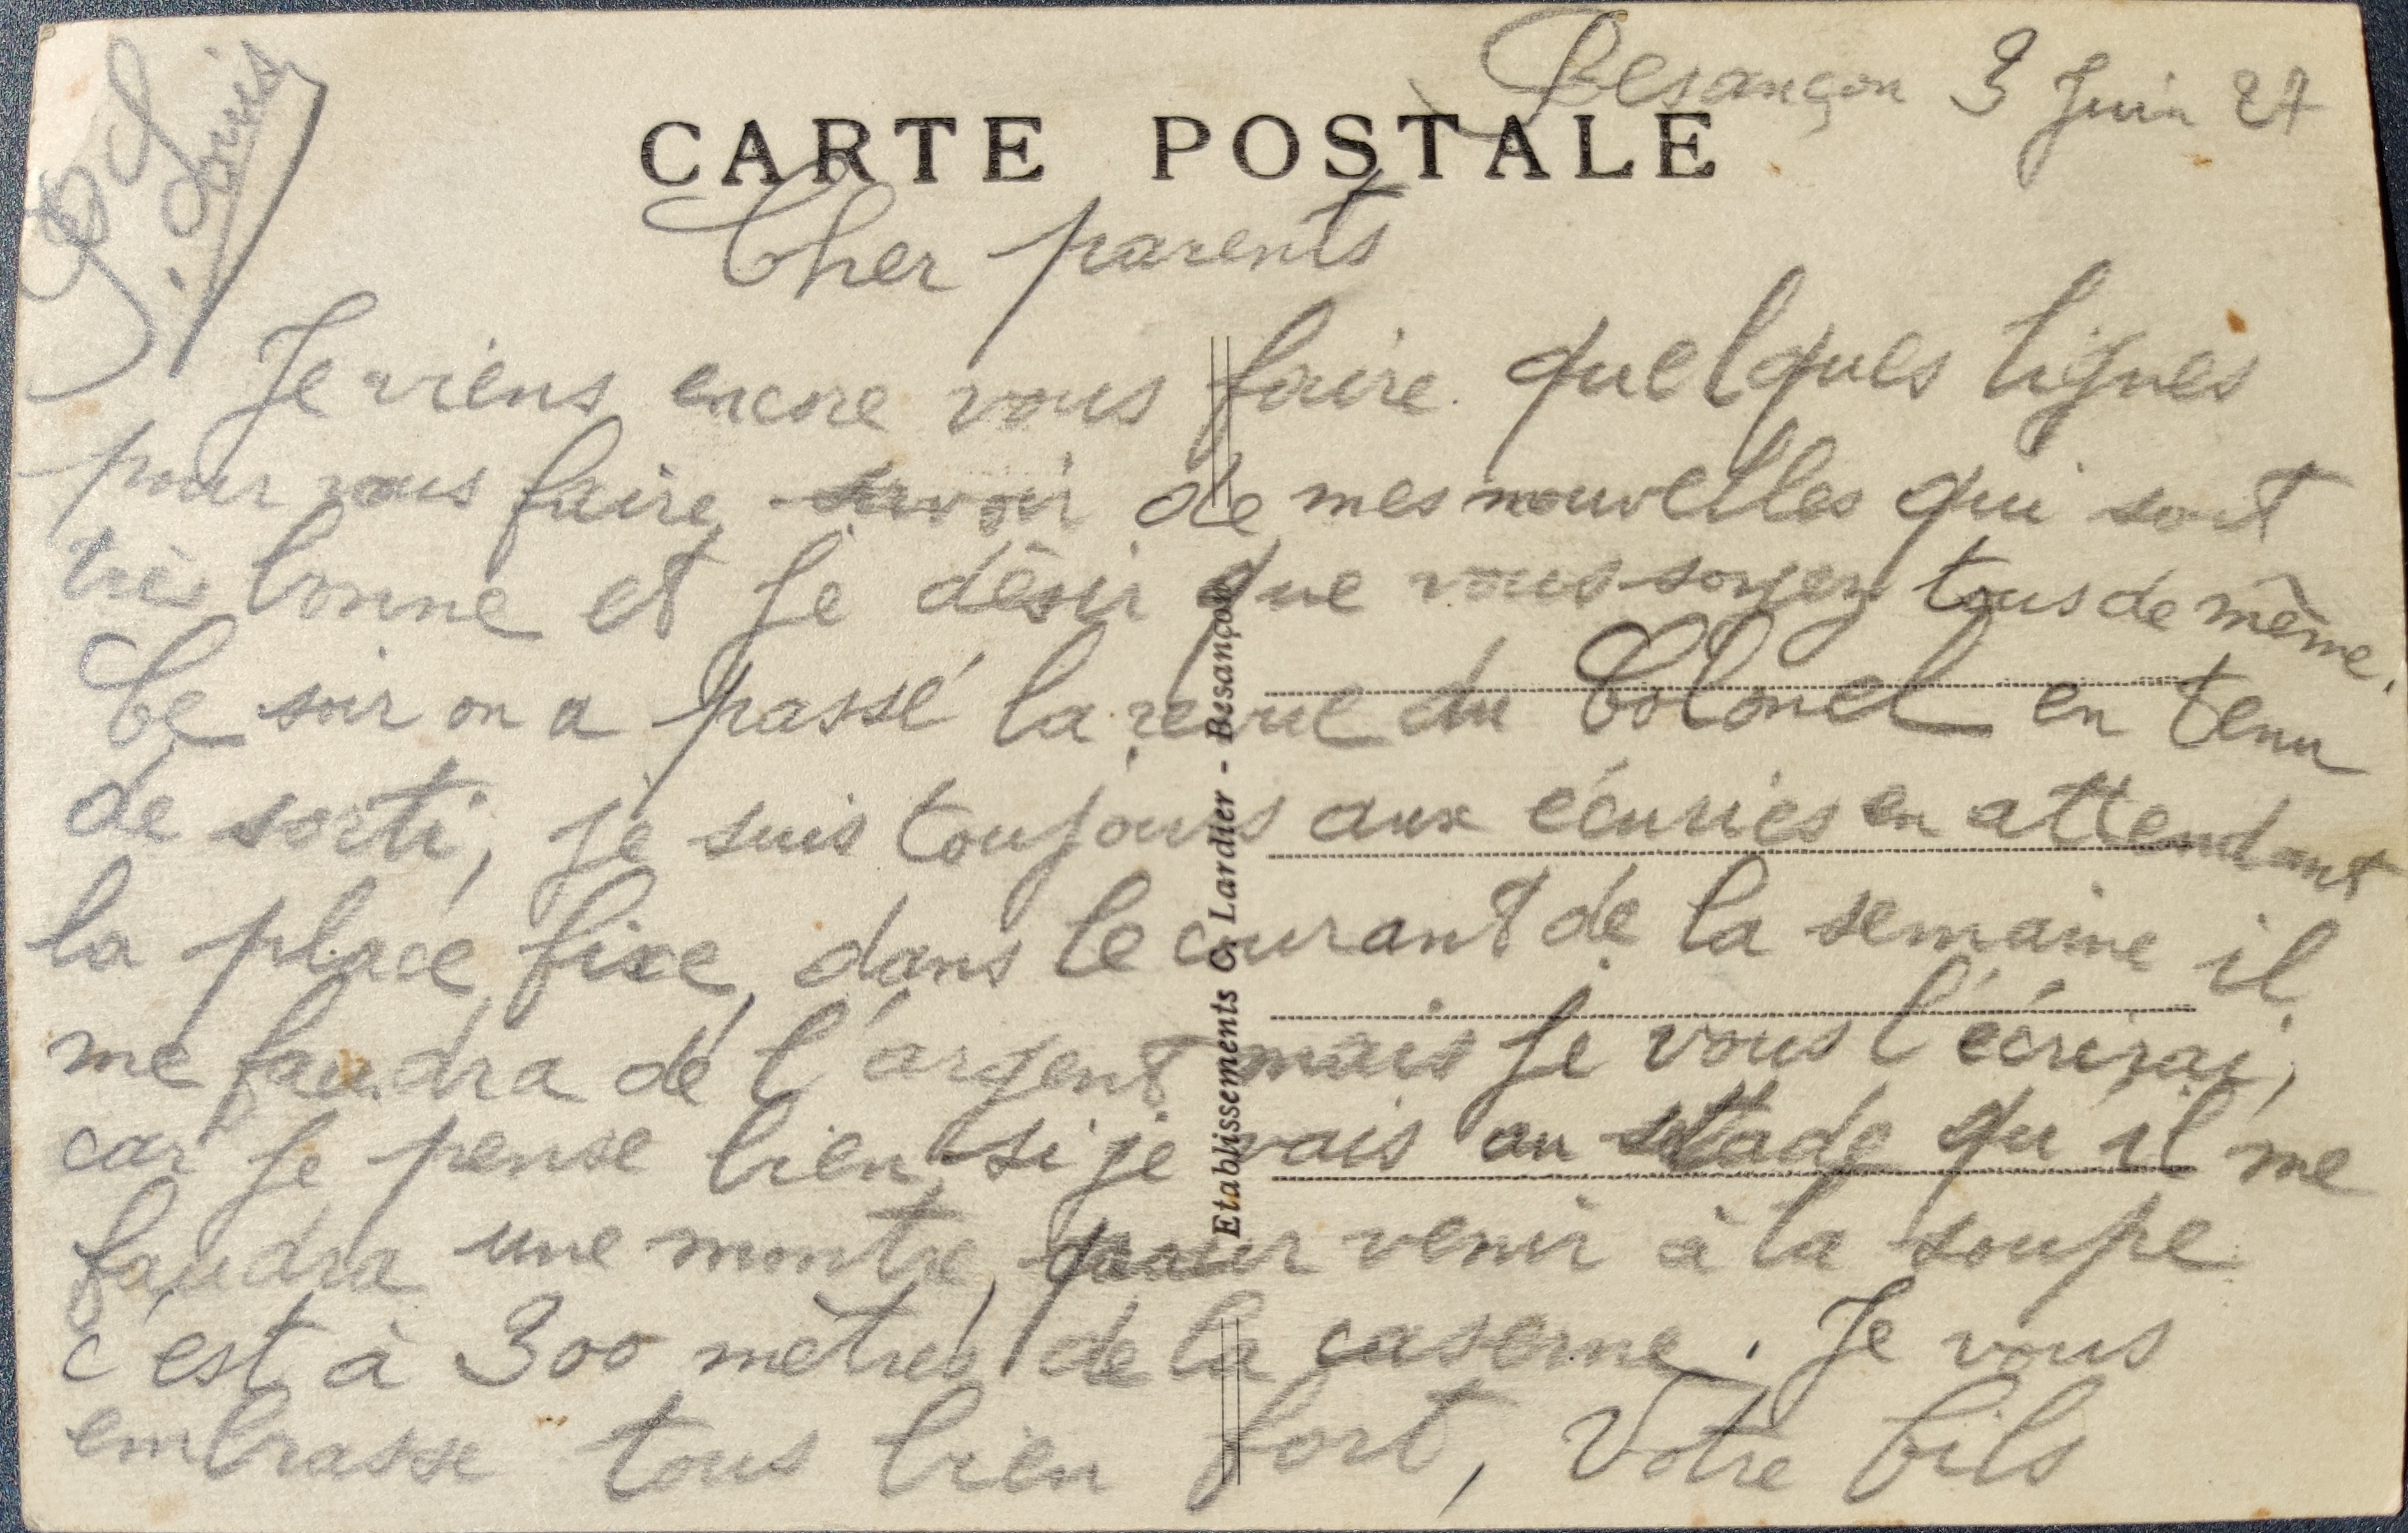 Besançon 3 Juin 27
CARTE POSTALE
Cher parents
Je viens encore vous faire quelques lignes
pour vous faire savoir de mes nouvelles qui sont
très bonne et Je désir que vous soyez tous de même.
Ce soir on a passé la revue du Colonel en tenu
de sorti, je suis toujours aux écuries en attendant
la place fixe, dans le courant de la semaine il
me faudra de l'argent mais Je vous l'écrirai,
car Je pense bien si je vais au stade qu'il me
faudra une montre, pour venir à la soupe
c'est à 300 mètres de la caserne. Je vous
embrasse tous bien fort, Votre fils
Louis
Etablissements C. Lardier - Besançon